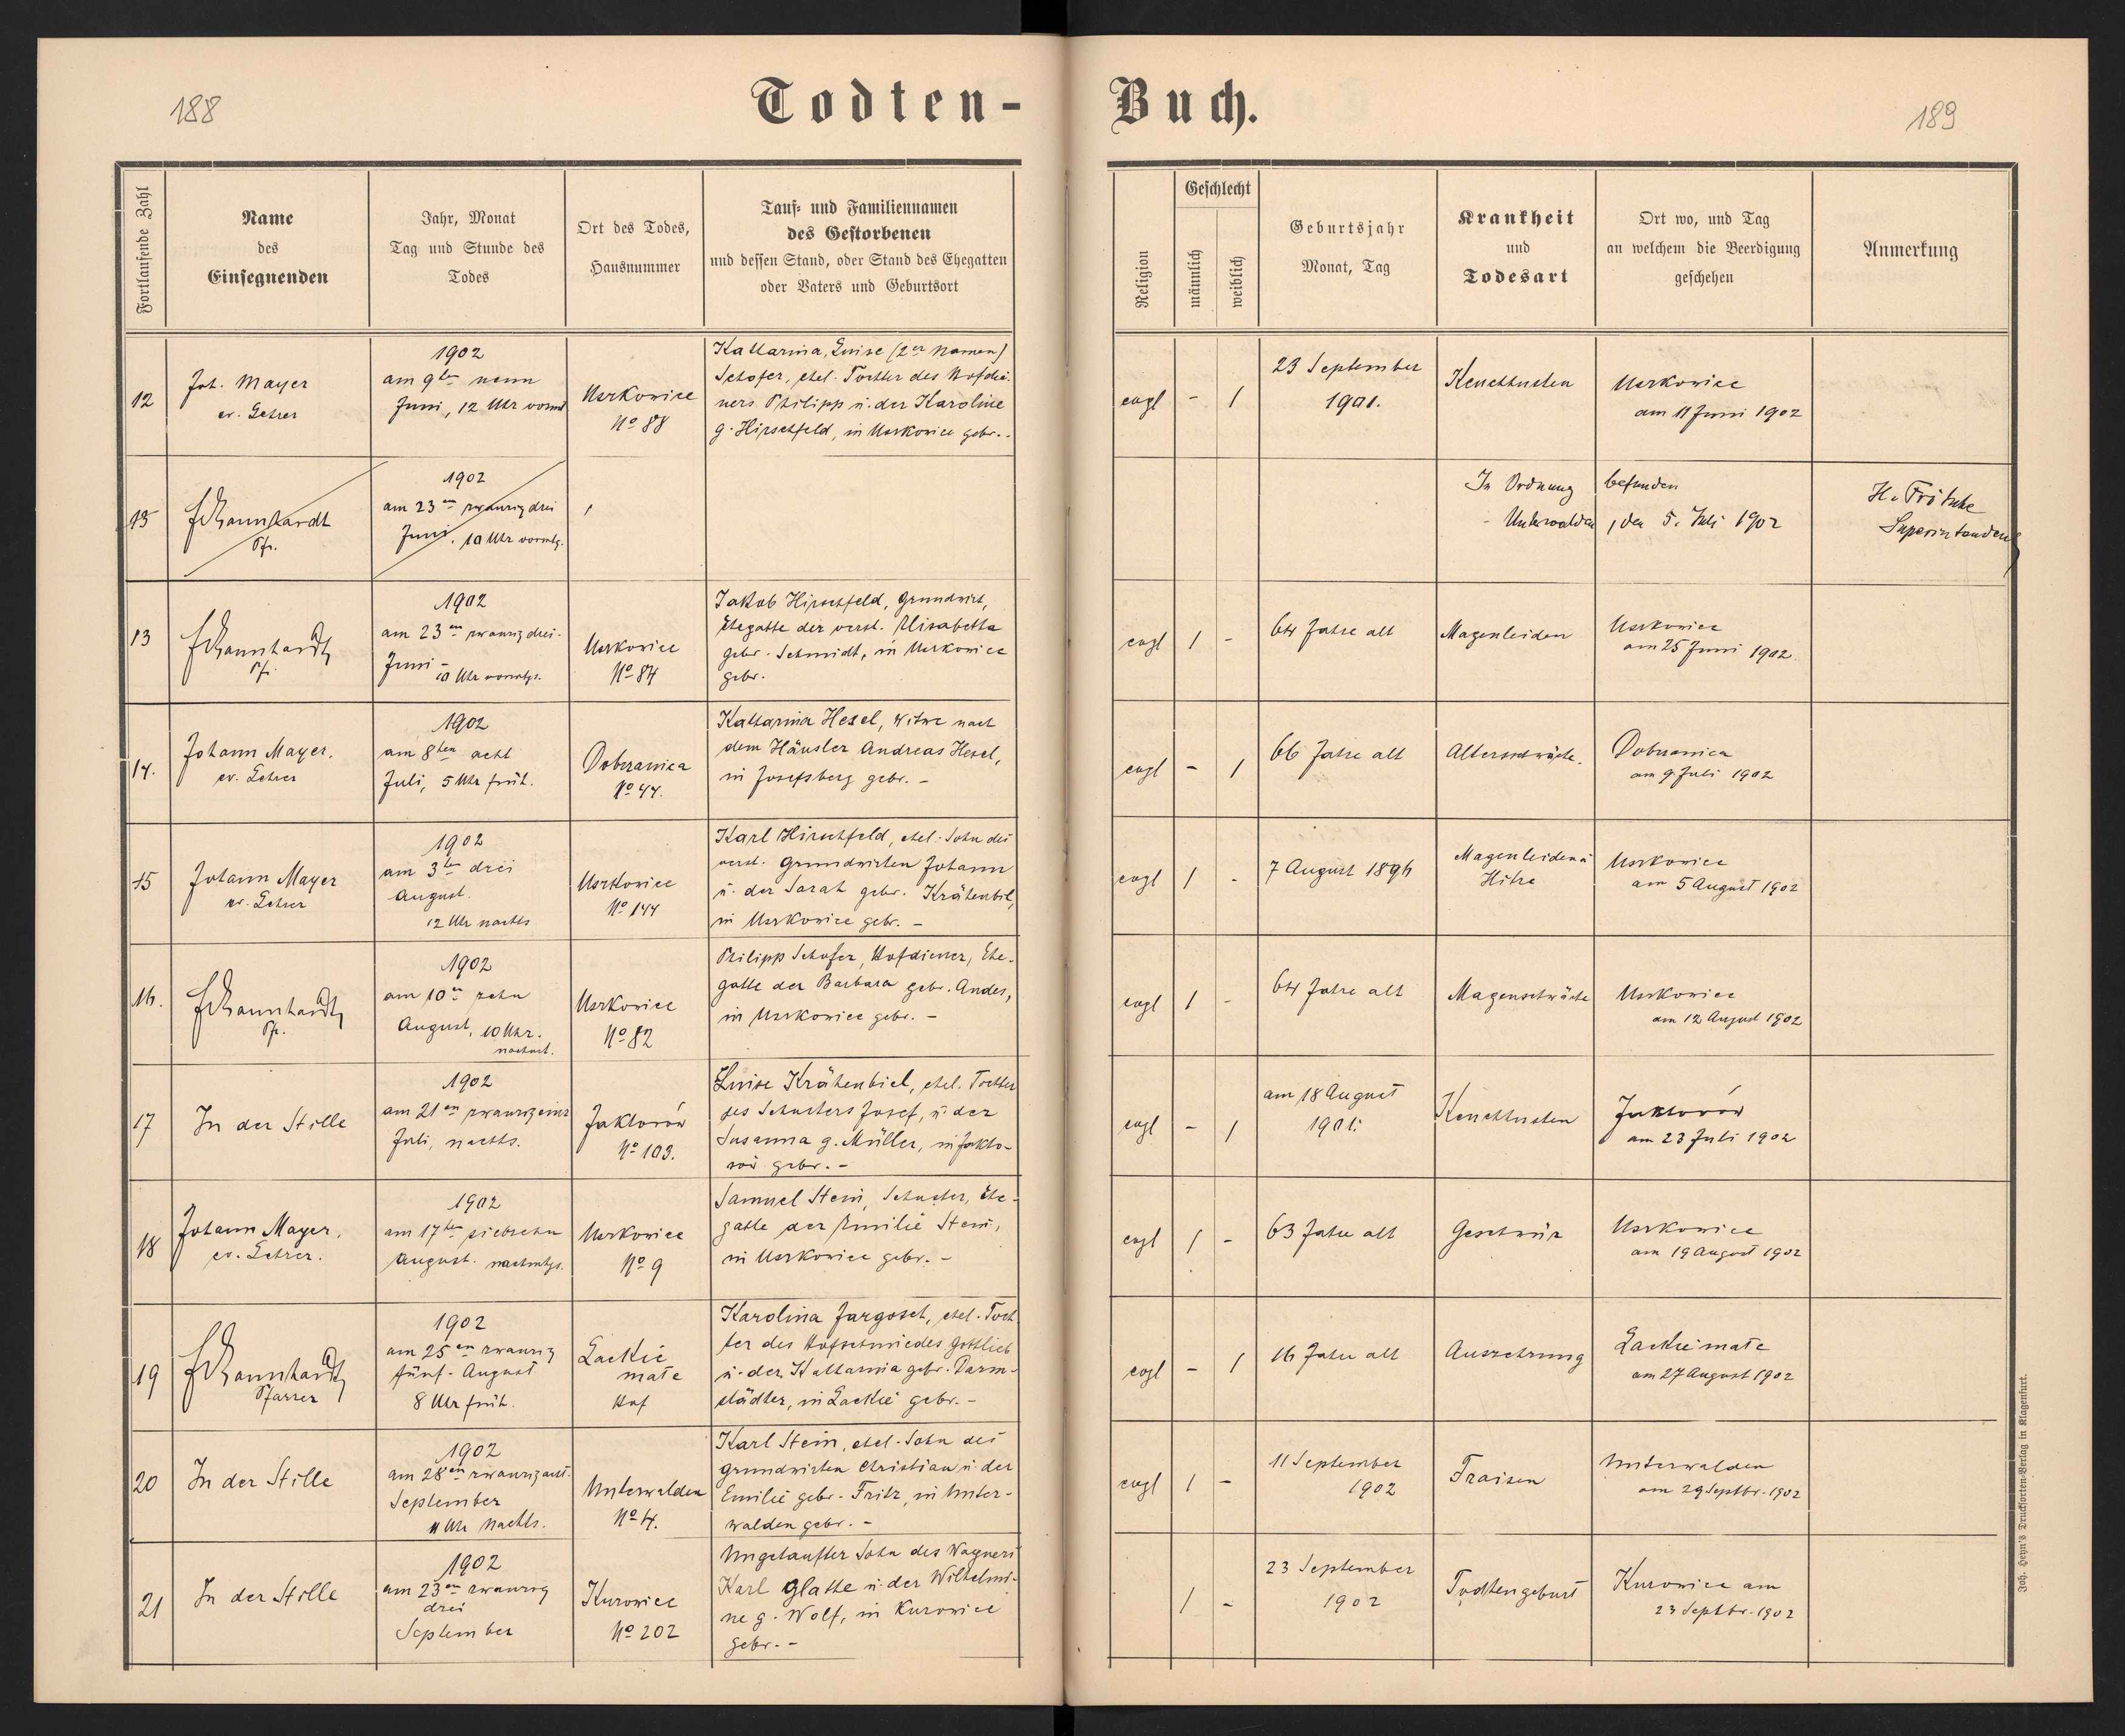 188
Todten-
Buch.
189
Fortlaufende Zahl
Name
des
Einsegnenden
Jahr, Monat
Tag und Stunde des
Todes
Ort des Todes,
Hausnummer
Tauf- und Familiennamen
des Gestorbenen
und dessen Stand, oder Stand des Ehegatten
oder Vaters und Geburtsort
Religion
Geschlecht
männlich
weiblich
Geburtsjahr
Monat, Tag
Krankheit
und
Todesart
Ort wo, und Tag
an welchem die Beerdigung
geschehen
Anmerkung
12
Joh. Mayer
ev. Lehrer
1902
am 9ten neun
Juni, 12 Uhr vorm
Uszkowice
No 88
Katharina, Luise (2er Namen)
Schofer, ehel. Tochter des Hofdie-
ners Philipp u. der Karoline
g. Hirschfeld, in Uszkowice gebr. -
evgl
-
1
23 September
1901.
Keuchhusten
Uszkowice
am 11 Juni 1902
13
Pfr.
1902
am 23en zwanzig drei
Juni, 10 Uhr vormtg.
In Ordnung befunden
Unterwalden, den 5. Juli 1902
Superintendent
13
Pfr.
1902
am 23en zwanzig drei-
Juni -
10 Uhr vormtgs.
Uszkowice
No 84
Jakob Hirschfeld, Grundwirt,
Ehegatte der verst. Elisabetha
gebr. Schmidt, in Uszkowice
gebr.
evgl
1
-
64 Jahre alt
Magenleiden
Uszkowice
am 25 Juni 1902.
14.
Johann Mayer.
ev. Lehrer
1902
am 8ten acht
Juli, 5 Uhr früh.
Dobrzanica
No 44.
Katharina Hesel, Witwe nach
dem Häusler Andreas Hesel,
in Josefsberg gebr. -
evgl
-
1
66 Jahre alt
Altersschwäche.
Dobrzanica
am 9 Juli 1902
15
Johann Mayer
ev. Lehrer
1902
am 3ten drei
August.
12 Uhr nachts
Uszkowice
No 144
Karl Hirschfeld, ehel. Sohn des
verst. Grundwirten Johann
u. der Sarah gebr. Krähenbil,
in Uszkowice gebr. -
evgl
1
-
7 August 1896
Magenleiden u
Hitze
Uszkowice
am 5 August 1902
16.
Pfr.
1902
am 10en zehn
August, 10 Uhr.
Uszkowice
No 82
Philipp Schofer, Hofdiener, Ehe-
gatte der Barbara gebr. Andes,
in Uszkowice gebr. -
evgl
1
-
64 Jahre alt
Magenschwäche
Uszkowice
am 12 August 1902
17
In der Stille
1902
am 21en zwanzig eins
Juli, nachts.
Jaktorów
No 103.
Luise Krähenbiel, ehel. Tochter
des Schusters Josef, u. der
Susanna g. Müller, in Jakto-
rów gebr. -
evgl
-
1
am 18 August
1901.
Keuchhusten
Jaktorów
am 23 Juli 1902
18
Johann Mayer,
ev. Lehrer.
1902
am 17ten siebzehn
August. nachmtgs.
Uszkowice
No 9
Samuel Stein, Schuster, Ehe-
gatte der Emilie Stein,
in Uszkowice gebr. -
evgl
1
-
63 Jahre alt
Geschwür
Uszkowice
am 19 August 1902
19
Pfarrer
1902
am 25en zwanzig
fünf - August
8 Uhr früh.
Lackie
małe
Hof
Karolina Jargosch, ehel. Toch-
ter des Hofschmiedes Gottlieb
u. der Katharina gebr. Darm-
städter, in Lackie gebr. -
evgl
-
1
16 Jahre alt
Auszehrung
Lackie małe
am 27 August 1902
20
In der Stille
1902
am 28en zwanzig acht.
September
11 Uhr Nachts.
Unterwalden
No 4.
Karl Stein, ehel. Sohn des
Grundwirten Christian u. der
Emilie gebr. Fritz, in Unter-
walden gebr. -
evgl
1
-
11 September
1902
Fraisen
Unterwalden
am 29 Septbr. 1902
21
In der Stille
1902
am 23en zwanzig
drei
September
Kurowice
No 202
Ungetaufter Sohn des Wagners
Karl Glatte u. der Wilhelmi-
ne g. Wolf, in Kurowice
gebr. -
1
-
23 September
1902
Todtengeburt
Kurowice am
23 Septbr. 1902
Joh. Heyn's Drucksorten-Verlag in Klagenfurt.